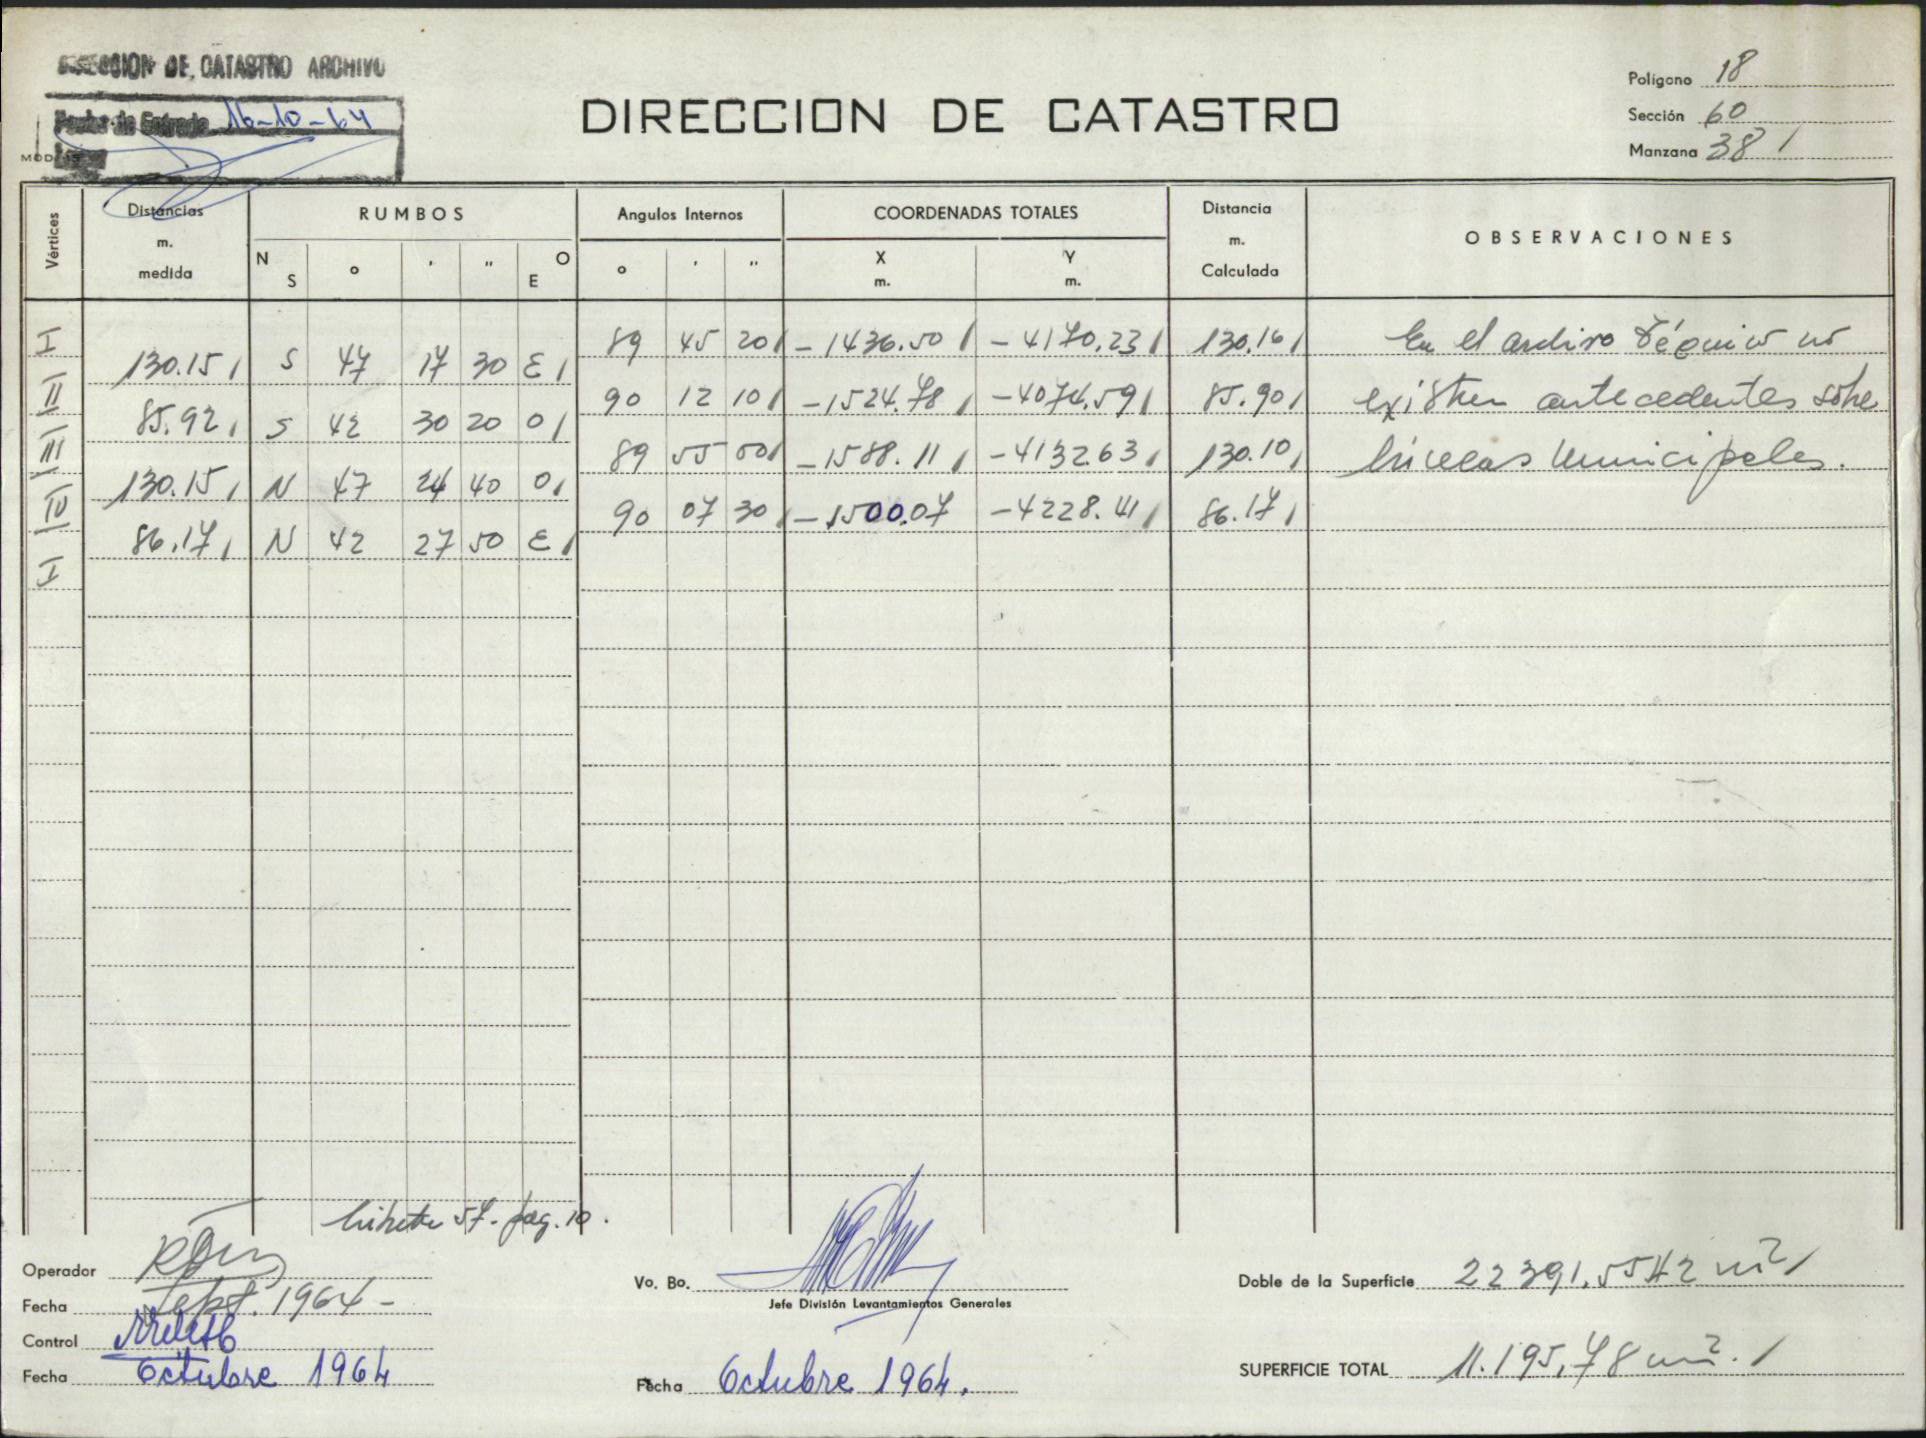 DIRECCION DE CATASTRO ARCHIVO
Fecha de Entrada 16-10-64
MOD.
DIRECCION DE CATASTRO
Polígono 18
Sección 60
Manzana 38 /
Vértices
Distancias m. medida
RUMBOS
N S ° ' " O E
Angulos Internos
° ' "
COORDENADAS TOTALES
X m. Y m.
Distancia m. Calculada
OBSERVACIONES
I 89 45 20/ -1436.50/ -4170.23/ 130.16/ En el archivo Técnico no
130.15/ S 47 17 30 E/
II 90 12 10/ -1524.78/ -4074.59/ 85.90/ existen antecedentes sobre
85.92/ S 42 30 20 O/
III 89 55 00/ -1588.11/ -4132.63/ 130.10/ líneas municipales.
130.15/ N 47 24 40 O/
IV 90 07 30/ -1500.07 -4228.41/ 86.17/
86.17/ N 42 27 50 E/
I
libreta 57- pag. 10.
Operador
Fecha Sept. 1964-
Control
Fecha Octubre 1964
Vo. Bo.
Jefe División Levantamientos Generales
Fecha Octubre 1964.
Doble de la Superficie 22391,5542 m2/
SUPERFICIE TOTAL 11.195,78 m2. /